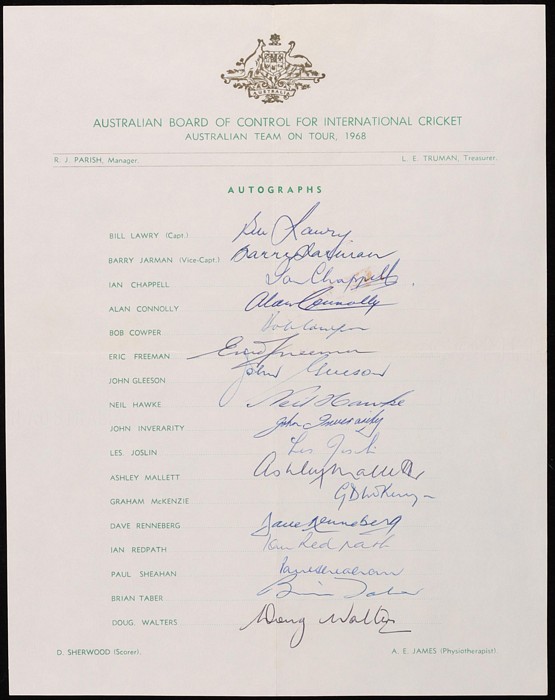 AUSTRALIA
AUSTRALIAN BOARD OF CONTROL FOR INTERNATIONAL CRICKET
AUSTRALIAN TEAM ON TOUR, 1968
R. J. PARISH, Manager. L. E. TRUMAN, Treasurer.
AUTOGRAPHS
BILL LAWRY (Capt.) Bill Lawry
BARRY JARMAN (Vice-Capt.) Barry Jarman
IAN CHAPPELL Ian Chappell
ALAN CONNOLLY Alan Connolly
BOB COWPER Bob Cowper
ERIC FREEMAN Eric Freeman
JOHN GLEESON John Gleeson
NEIL HAWKE Neil Hawke
JOHN INVERARITY John Inverarity
LES. JOSLIN Les Joslin
ASHLEY MALLETT Ashley Mallett
GRAHAM McKENZIE G D McKenzie
DAVE RENNEBERG Dave Renneberg
IAN REDPATH Ian Redpath
PAUL SHEAHAN Paul Sheahan
BRIAN TABER Brian Taber
DOUG. WALTERS Doug Walters
D. SHERWOOD (Scorer). A. E. JAMES (Physiotherapist).